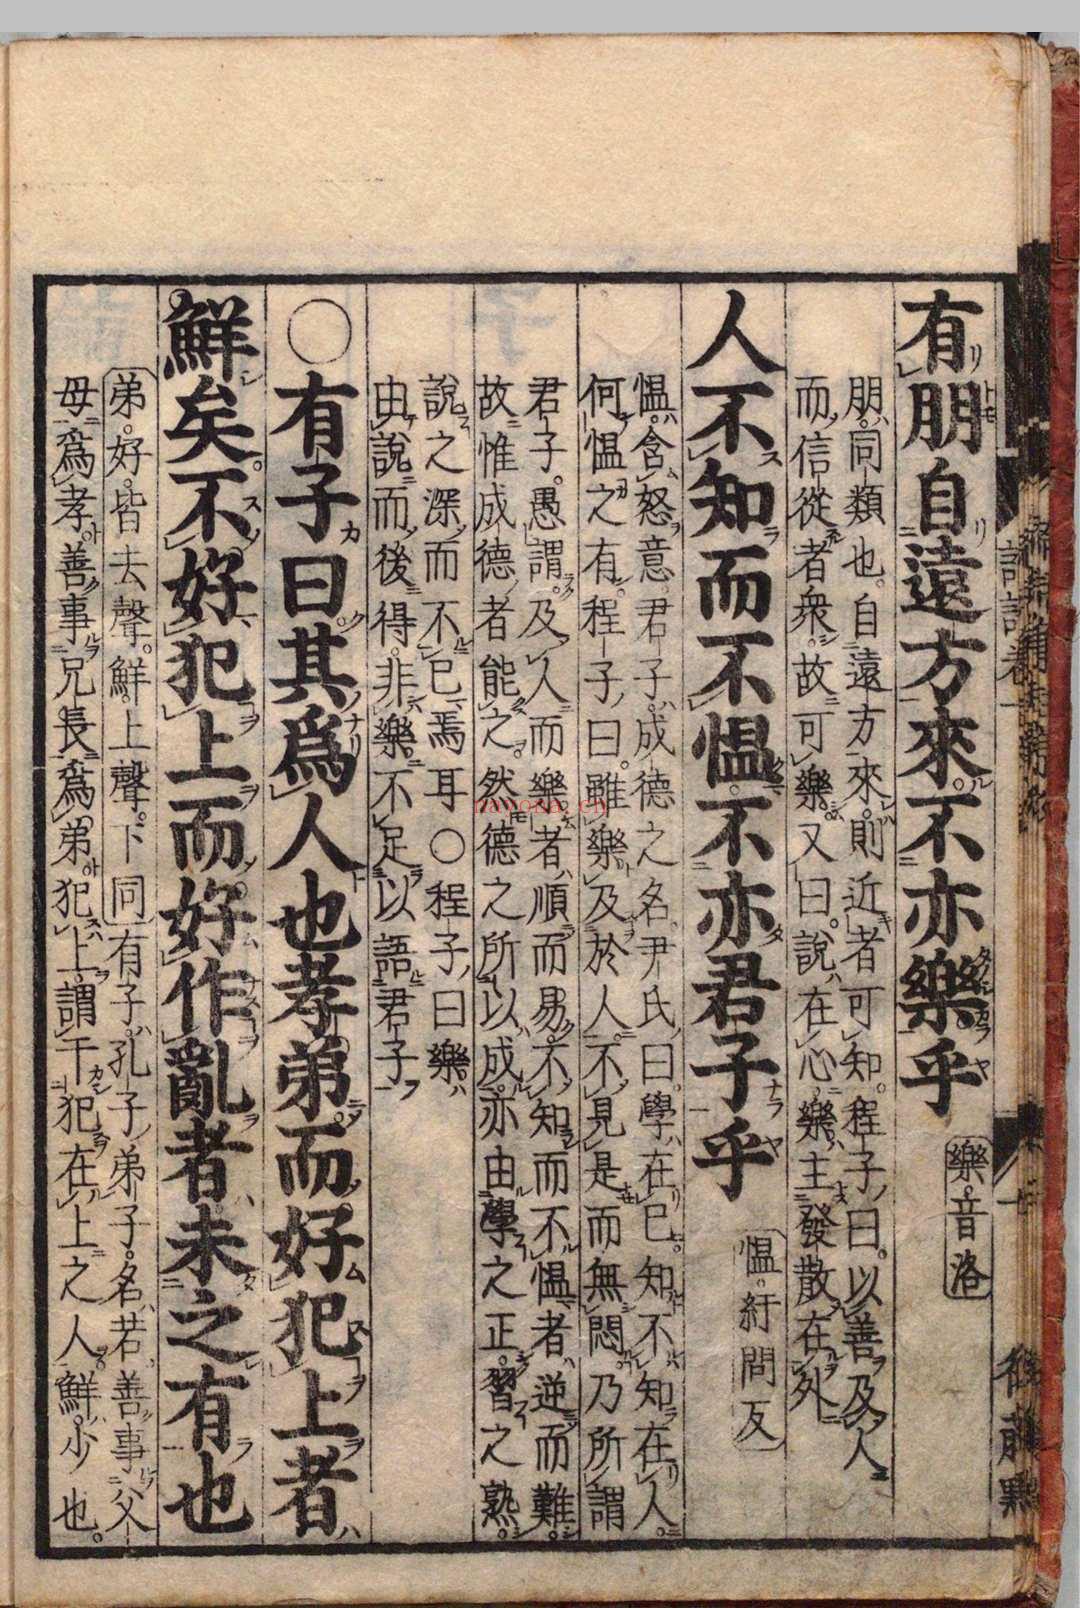 有朋自遠方來不亦樂乎 樂音洛
朋同類也自遠方來則近者可知程子曰以善及人
而信從者衆故可樂又曰說在心樂主發散在外
人不知而不慍不亦君子乎 慍紆問反
慍含怒意君子成德之名尹氏曰學在己知不知在人
何慍之有程子曰雖樂及於人不見是而無悶乃所謂
君子愚謂及人而樂者順而易不知而不慍者逆而難
故惟成德者能之然德之所以成亦由學之正習之熟
說之深而不已焉耳○程子曰樂
由說而後得非樂不足以語君子
○有子曰其爲人也孝弟而好犯上者
鮮矣不好犯上而好作亂者未之有也
弟好皆去聲鮮上聲下同有子孔子弟子名若善事父
母爲孝善事兄長爲弟犯上謂干犯在上之人鮮少也
後藤點
navona.cn